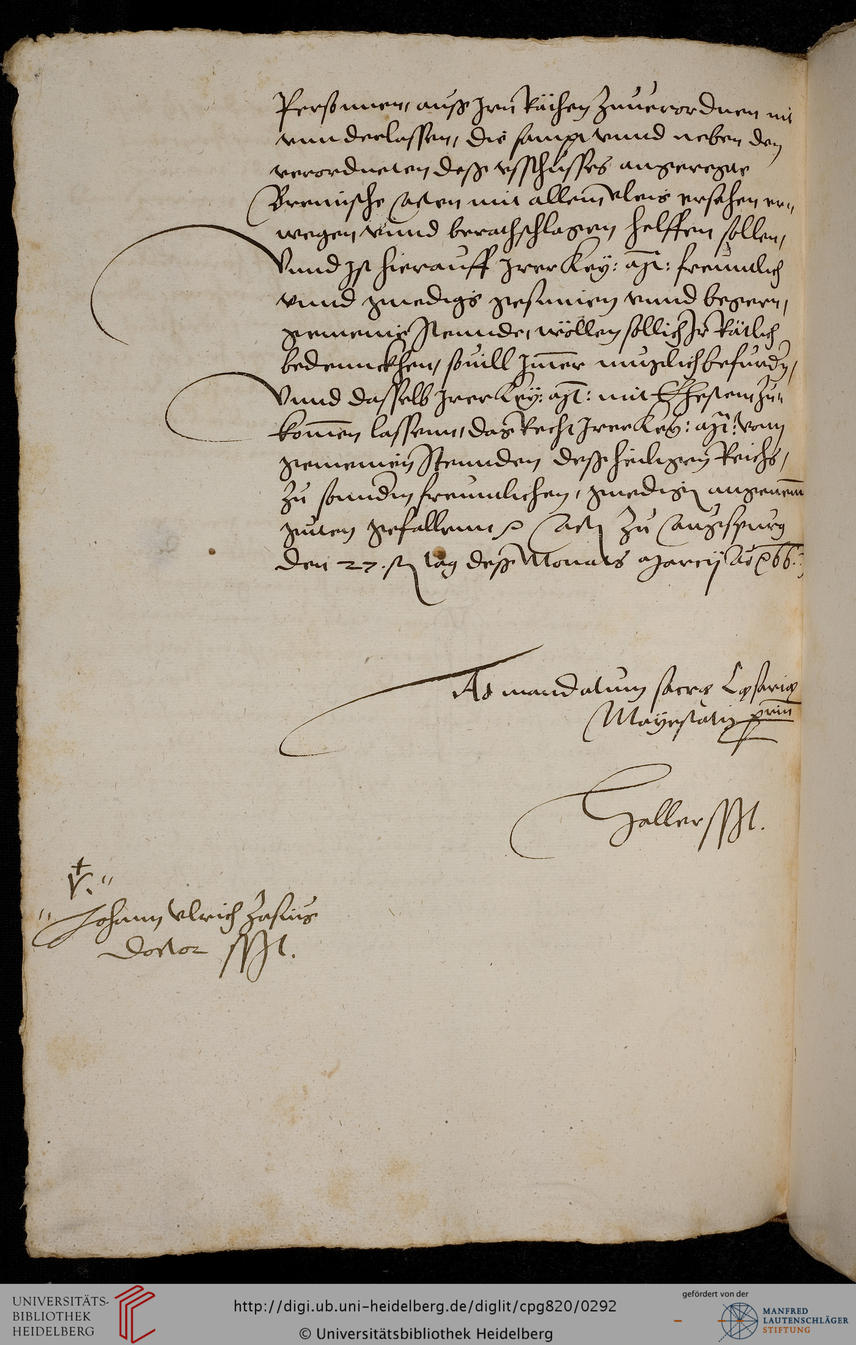 Personnen, auß Irn Räthen zuuerordnen nit
vnnderlassen, die sampt vnnd neben den
verordneten deß vsschusses angeregte
Bremische Acten mit allem vleis ersehen er„
wegen vnnd berathschlagen helffen sollen,
Vnnd Ist hierauff Irer Key: Mt: freundtlich
vnnd gnedigs gesinnen vnnd begern,
gemeine Stennde, wöllen sollich Ir Rätlich
bedennckhen, souill Immer muglich befurdern,
Vnnd dasselb Irer Key: Mt: mit Ehestem zu„
kommen lassenn, das Recht Irer Key: Mt: vonn
gemeinen Stennden deß heiligen Reichs,
zu sonndern freundtlichen, gnedigen angenemen
guten gefallenn Actum zu Augspurg
den 27. tag deß Monats Marcij Ao 66.
Ad mandatum sacrae Caesariae
Mayestatis proprium
Haller sst.
V.
Johann Vlrich Zasius
Doctor sst.
UNIVERSITÄTS-
BIBLIOTHEK
HEIDELBERG
http://digi.ub.uni-heidelberg.de/diglit/cpg820/0292
© Universitätsbibliothek Heidelberg
gefördert von der
MANFRED
LAUTENSCHLÄGER
STIFTUNG